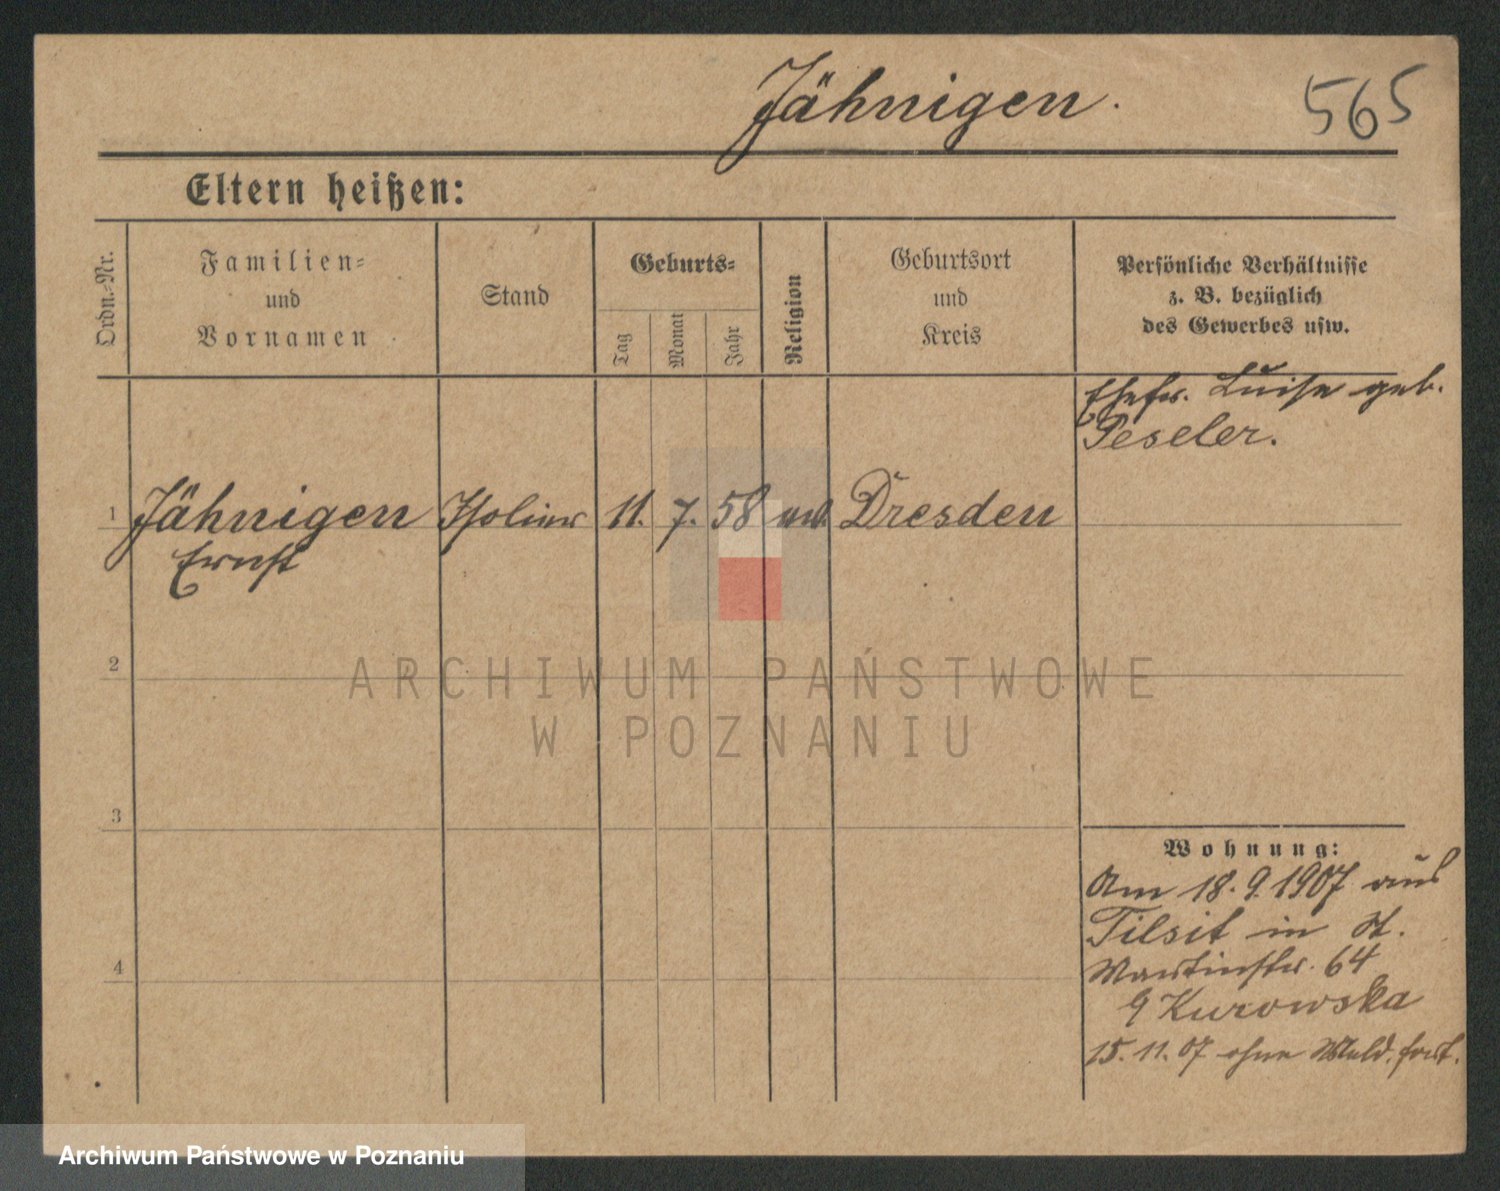 Jähnigen.
565
Eltern heißen:
Ordn.-Nr.
Familien-
und
Vornamen
Stand
Geburts-
Tag
Monat
Jahr
Religion
Geburtsort
und
Kreis
Persönliche Verhältnisse
z. B. bezüglich
des Gewerbes usw.
Ehefr. Luise geb.
Peseler.
1 Jähnigen Isolirer 11. 7. 58 Dresden
Ernst
2
3
4
Wohnung:
Am 18.9.1907 aus
Tilsit in St.
Martinstr. 64
Kurowska
15.11.07 ohne Meld. fort.
ARCHIWUM PAŃSTWOWE
W POZNANIU
Archiwum Państwowe w Poznaniu